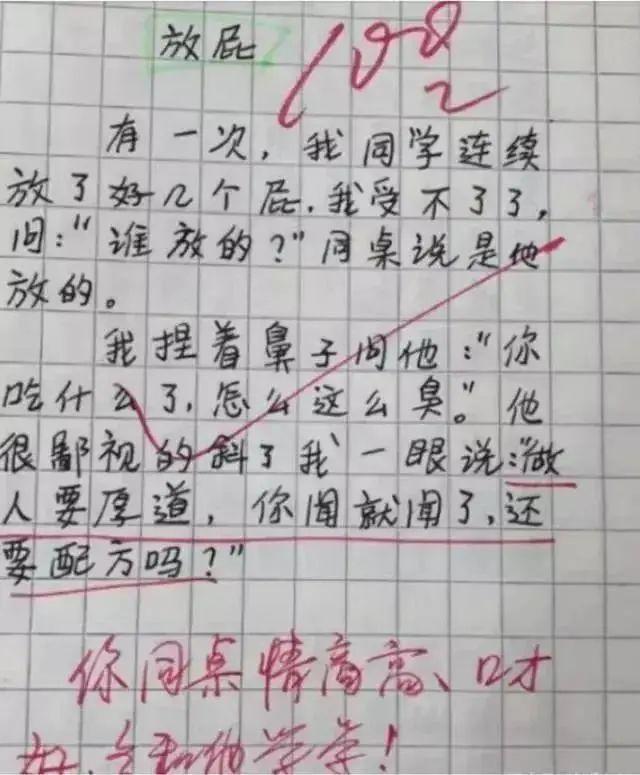 放屁
100
有一次，我同学连续
放了好几个屁．我受不了了，
问：“谁放的？”同桌说是他
放的。
我捏着鼻子问他：“你
吃什么了，怎么这么臭。”他
很鄙视的斜了我一眼说：“做
人要厚道，你闻就闻了，还
要配方吗？”
你同桌情商高、口才
好，多和他学学！